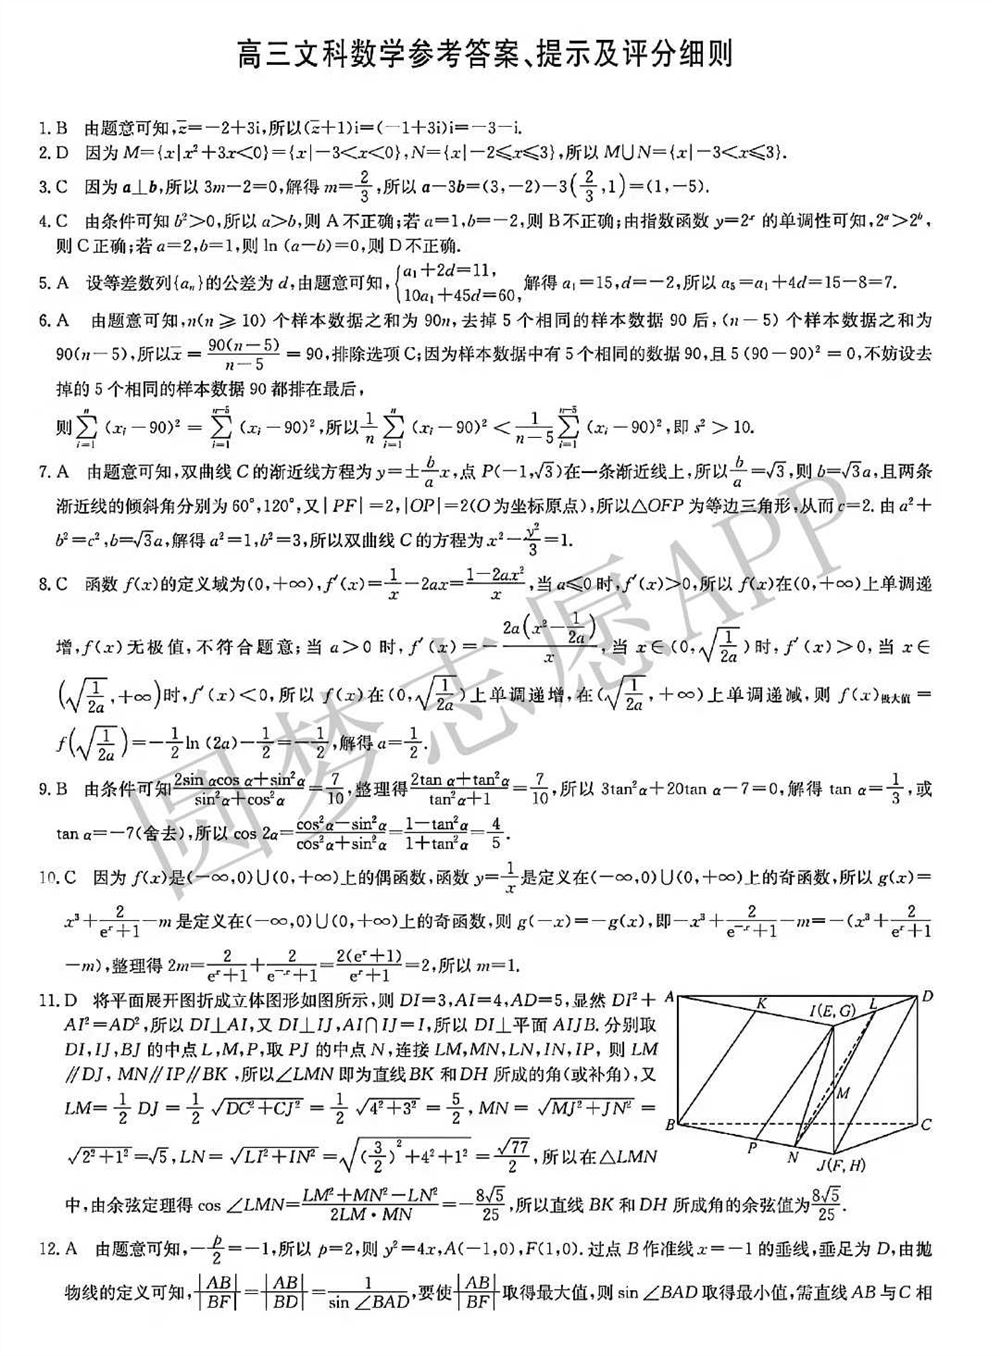 高三文科数学参考答案、提示及评分细则
1. B 由题意可知,z̅=-2+3i,所以(z̅+1)i=(-1+3i)i=-3-i.
2. D 因为 M={x|x²+3x<0}={x|-3<x<0},N={x|-2≤x≤3},所以 M∪N={x|-3<x≤3}.
3. C 因为 a⊥b,所以 3m-2=0,解得 m=2/3,所以 a-3b=(3,-2)-3(2/3,1)=(1,-5).
4. C 由条件可知 b²>0,所以 a>b,则 A 不正确;若 a=1,b=-2,则 B 不正确;由指数函数 y=2ˣ 的单调性可知,2ᵃ>2ᵇ,
则 C 正确;若 a=2,b=1,则 ln (a-b)=0,则 D 不正确.
5. A 设等差数列{aₙ}的公差为 d,由题意可知,{a₁+2d=11, 10a₁+45d=60, 解得 a₁=15,d=-2,所以 a₅=a₁+4d=15-8=7.
6. A 由题意可知,n(n≥10) 个样本数据之和为 90n,去掉 5 个相同的样本数据 90 后,(n-5) 个样本数据之和为
90(n-5),所以 x̅=90(n-5)/(n-5)=90,排除选项 C;因为样本数据中有 5 个相同的数据 90,且 5(90-90)²=0,不妨设去
掉的 5 个相同的样本数据 90 都排在最后,
则 ∑_{i=1}^{n}(xᵢ-90)²=∑_{i=1}^{n-5}(xᵢ-90)²,所以 1/n ∑_{i=1}^{n}(xᵢ-90)²<1/(n-5) ∑_{i=1}^{n-5}(xᵢ-90)²,即 s²>10.
7. A 由题意可知,双曲线 C 的渐近线方程为 y=±(b/a)x,点 P(-1,√3)在一条渐近线上,所以 b/a=√3,则 b=√3a,且两条
渐近线的倾斜角分别为 60°,120°,又|PF|=2,|OP|=2(O 为坐标原点),所以△OFP 为等边三角形,从而 c=2. 由 a²+
b²=c²,b=√3a,解得 a²=1,b²=3,所以双曲线 C 的方程为 x²-y²/3=1.
8. C 函数 f(x)的定义域为(0,+∞),f′(x)=1/x-2ax=(1-2ax²)/x,当 a≤0 时,f′(x)>0,所以 f(x)在(0,+∞)上单调递
增,f(x)无极值,不符合题意;当 a>0 时,f′(x)=-2a(x²-1/(2a))/x,当 x∈(0,√(1/(2a)))时,f′(x)>0,当 x∈
(√(1/(2a)),+∞)时,f′(x)<0,所以 f(x)在(0,√(1/(2a)))上单调递增,在(√(1/(2a)),+∞)上单调递减,则 f(x)极大值=
f(√(1/(2a)))=-1/2 ln (2a)-1/2=-1/2,解得 a=1/2.
9. B 由条件可知(2sin αcos α+sin²α)/(sin²α+cos²α)=7/10,整理得(2tan α+tan²α)/(tan²α+1)=7/10,所以 3tan²α+20tan α-7=0,解得 tan α=1/3,或
tan α=-7(舍去),所以 cos 2α=(cos²α-sin²α)/(cos²α+sin²α)=(1-tan²α)/(1+tan²α)=4/5.
10. C 因为 f(x)是(-∞,0)∪(0,+∞)上的偶函数,函数 y=1/x是定义在(-∞,0)∪(0,+∞)上的奇函数,所以 g(x)=
x³+2/(eˣ+1)-m 是定义在(-∞,0)∪(0,+∞)上的奇函数,则 g(-x)=-g(x),即-x³+2/(e⁻ˣ+1)-m=-(x³+2/(eˣ+1)
-m),整理得 2m=2/(eˣ+1)+2/(e⁻ˣ+1)=2(eˣ+1)/(eˣ+1)=2,所以 m=1.
11. D 将平面展开图折成立体图形如图所示,则 DI=3,AI=4,AD=5,显然 DI²+
AI²=AD²,所以 DI⊥AI,又 DI⊥IJ,AI∩IJ=I,所以 DI⊥平面 AIJB. 分别取
DI,IJ,BJ 的中点 L,M,P,取 PJ 的中点 N,连接 LM,MN,LN,IN,IP, 则 LM
∥DJ, MN∥IP∥BK ,所以∠LMN 即为直线 BK 和 DH 所成的角(或补角),又
LM=1/2 DJ=1/2 √(DC²+CJ²)=1/2 √(4²+3²)=5/2, MN=√(MJ²+JN²)=
√(2²+1²)=√5,LN=√(LI²+IN²)=√((3/2)²+4²+1²)=√77/2,所以在△LMN
中,由余弦定理得 cos ∠LMN=(LM²+MN²-LN²)/(2LM·MN)=-8√5/25,所以直线 BK 和 DH 所成角的余弦值为8√5/25.
A
K
I(E,G)
L
D
M
B
C
P
N
J(F,H)
12. A 由题意可知,-p/2=-1,所以 p=2,则 y²=4x,A(-1,0),F(1,0). 过点 B 作准线 x=-1 的垂线,垂足为 D,由抛
物线的定义可知,|AB|/|BF|=|AB|/|BD|=1/sin ∠BAD,要使|AB|/|BF|取得最大值,则 sin ∠BAD 取得最小值,需直线 AB 与 C 相
圆梦志愿APP